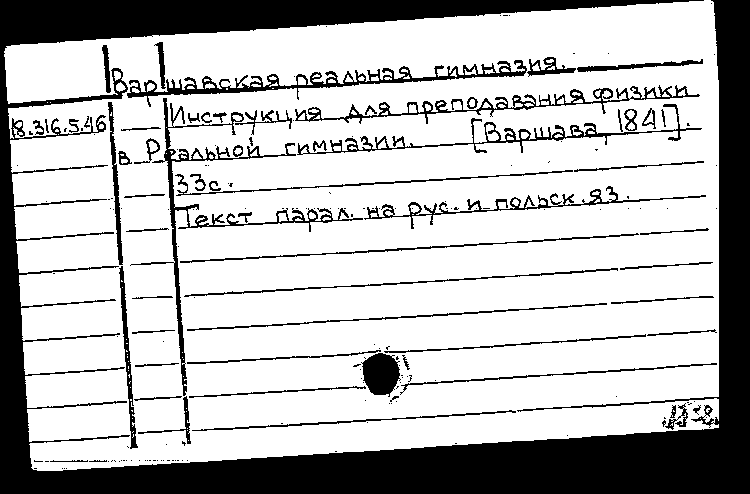 Варшавская реальная гимназия.
18.316.5.46 Инструкция для преподавания физики
в Реальной гимназии. [Варшава, 1841].
33с.
Текст парал. на рус. и польск. яз.